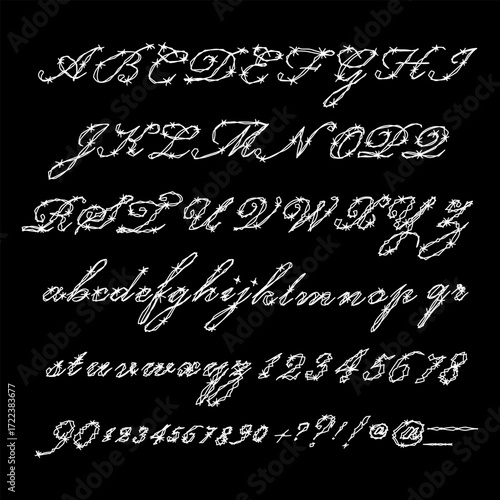 A B C D E F G H I
J K L M N O P Q
R S T U V W X Y Z
abcdefghijklmnop qr
stuvwxyz 12345678
90 1234567890 +?!|@@__
Adobe Stock | #1722383677